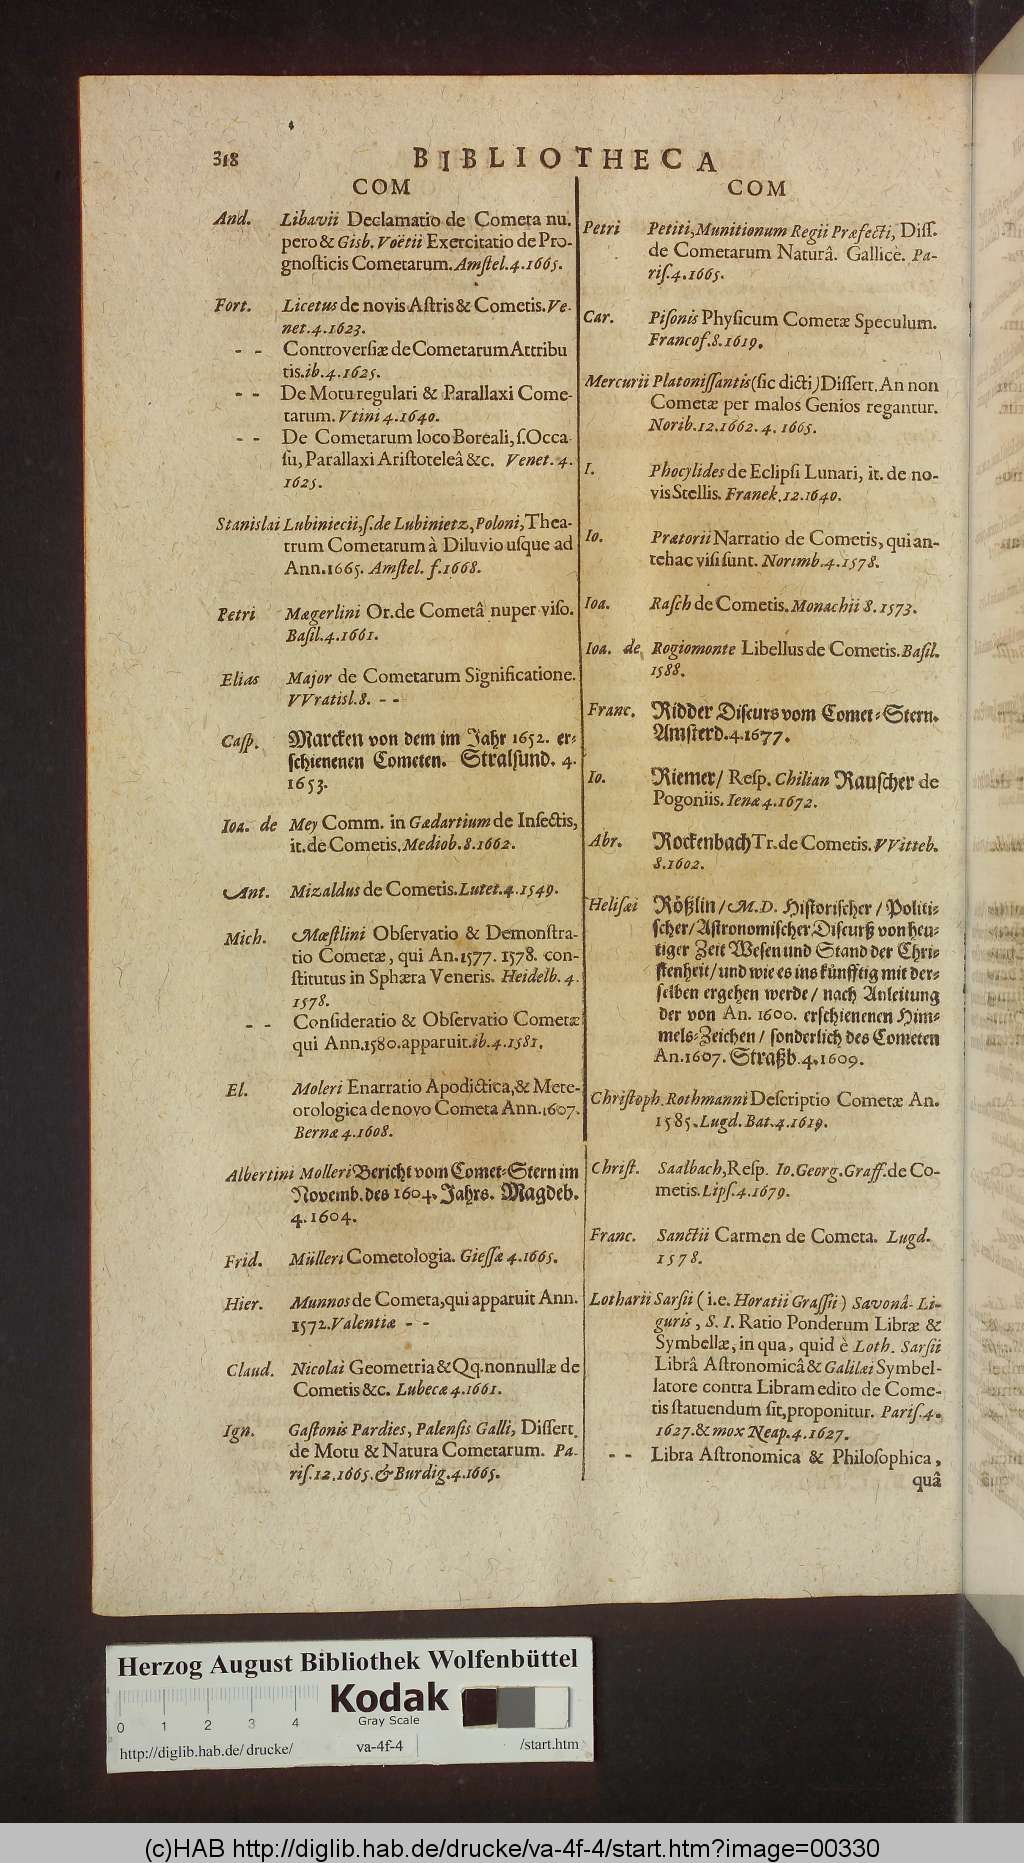 318
BIBLIOTHECA
COM
And. Libavii Declamatio de Cometa nu.
pero & Gisb. Voëtii Exercitatio de Pro-
gnosticis Cometarum. Amstel. 4. 1665.
Fort. Licetus de novis Astris & Cometis. Ve-
net. 4. 1623.
- - Controversiæ de Cometarum Attribu
tis. ib. 4. 1625.
- - De Motu regulari & Parallaxi Come-
tarum. Vtini 4. 1640.
- - De Cometarum loco Boreali, s. Occa-
su, Parallaxi Aristoteleâ &c. Venet. 4.
1625.
Stanislai Lubiniecii, s. de Lubinietz, Poloni, Thea-
trum Cometarum à Diluvio usque ad
Ann. 1665. Amstel. f. 1668.
Petri Mægerlini Or. de Cometâ nuper viso.
Basil. 4. 1661.
Elias Major de Cometarum Significatione.
VVratisl. 8. - -
Casp. Marcken von dem im Jahr 1652. er-
schienenen Cometen. Stralsund. 4.
1653.
Ioa. de Mey Comm. in Gædartium de Insectis,
it. de Cometis. Mediob. 8. 1662.
Ant. Mizaldus de Cometis. Lutet. 4. 1549.
Mich. Mæstlini Observatio & Demonstra-
tio Cometæ, qui An. 1577. 1578. con-
stitutus in Sphæra Veneris. Heidelb. 4.
1578.
- - Consideratio & Observatio Cometæ
qui Ann. 1580. apparuit. ib. 4. 1581.
El. Moleri Enarratio Apodictica, & Mete-
orologica de novo Cometa Ann. 1607.
Bernæ 4. 1608.
Albertini Molleri Bericht vom Comet-Stern im
Novemb. des 1604. Jahrs. Magdeb.
4. 1604.
Frid. Mülleri Cometologia. Giessæ 4. 1665.
Hier. Munnos de Cometa, qui apparuit Ann.
1572. Valentiæ - -
Claud. Nicolai Geometria & Qq. nonnullæ de
Cometis &c. Lubecæ 4. 1661.
Ign. Gastonis Pardies, Palensis Galli, Dissert.
de Motu & Natura Cometarum. Pa-
ris. 12. 1665. & Burdig. 4. 1665.
COM
Petri Petiti, Munitionum Regii Præfecti, Diss.
de Cometarum Naturâ. Gallicè. Pa-
ris. 4. 1665.
Car. Pisonis Physicum Cometæ Speculum.
Francof. 8. 1619.
Mercurii Platonissantis (sic dicti) Dissert. An non
Cometæ per malos Genios regantur.
Norib. 12. 1662. 4. 1665.
I. Phocylides de Eclipsi Lunari, it. de no-
vis Stellis. Franek. 12. 1640.
Io. Prætorii Narratio de Cometis, qui an-
tehac visi sunt. Norimb. 4. 1578.
Ioa. Rasch de Cometis. Monachii 8. 1573.
Ioa. de Rogiomonte Libellus de Cometis. Basil.
1588.
Franc. Ridder Discurs vom Comet-Stern.
Amsterd. 4. 1677.
Io. Riemer/ Resp. Chilian Rauscher de
Pogoniis. Ienæ 4. 1672.
Abr. Rockenbach Tr. de Cometis. VVitteb.
8. 1602.
Helisæi Rößlin/ M.D. Historischer/ Politi-
scher/ Astronomischer Discurß von heu-
tiger Zeit Wesen und Stand der Chri-
stenheit/ und wie es ins künfftig mit der-
selben ergehen werde/ nach Anleitung
der von An. 1600. erschienenen Him-
mels-Zeichen/ sonderlich des Cometen
An. 1607. Straßb. 4. 1609.
Christoph. Rothmanni Descriptio Cometæ An.
1585. Lugd. Bat. 4. 1619.
Christ. Saalbach, Resp. Io. Georg. Graff. de Co-
metis. Lips. 4. 1679.
Franc. Sanctii Carmen de Cometa. Lugd.
1578.
Lotharii Sarsii (i.e. Horatii Grassii) Savonâ-Li-
guris, S. I. Ratio Ponderum Libræ &
Symbellæ, in qua, quid è Loth. Sarsii
Librâ Astronomicâ & Galilæi Symbel-
latore contra Libram edito de Come-
tis statuendum sit, proponitur. Paris. 4.
1627. & mox Neap. 4. 1627.
- - Libra Astronomica & Philosophica,
quâ
Herzog August Bibliothek Wolfenbüttel
Kodak
Gray Scale
0 1 2 3 4
http://diglib.hab.de/drucke/ va-4f-4 /start.htm
(c)HAB http://diglib.hab.de/drucke/va-4f-4/start.htm?image=00330